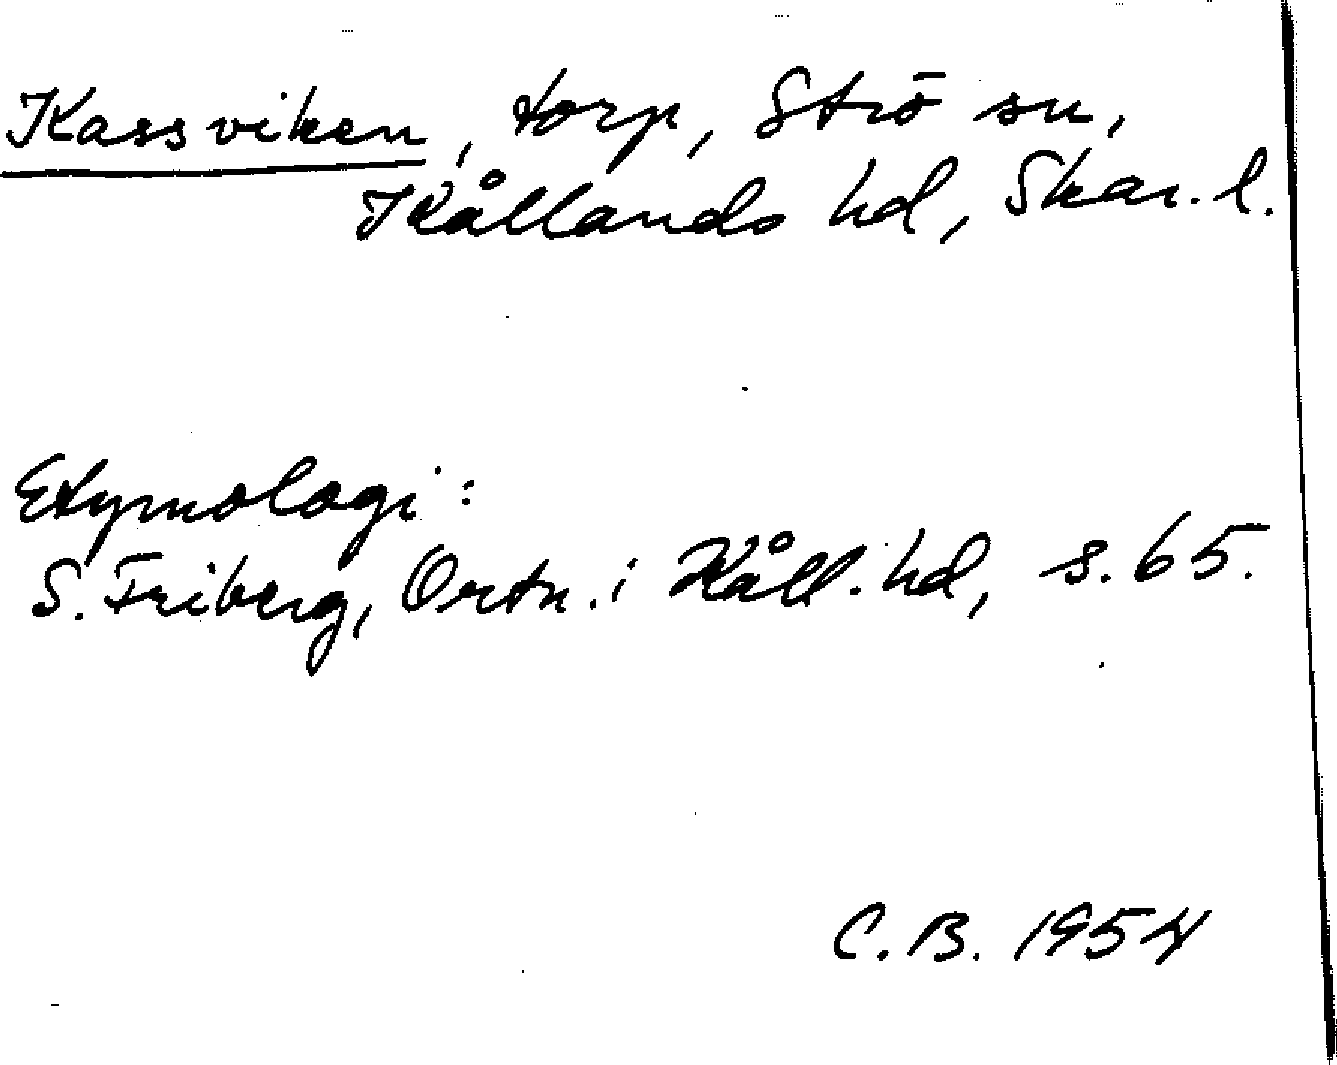 Kassviken, torp, Strö sn,
Kållands hd, Skar. l.
Etymologi:
S. Friberg, Ortn. i Kåll. hd, s. 65.
C. B. 1954